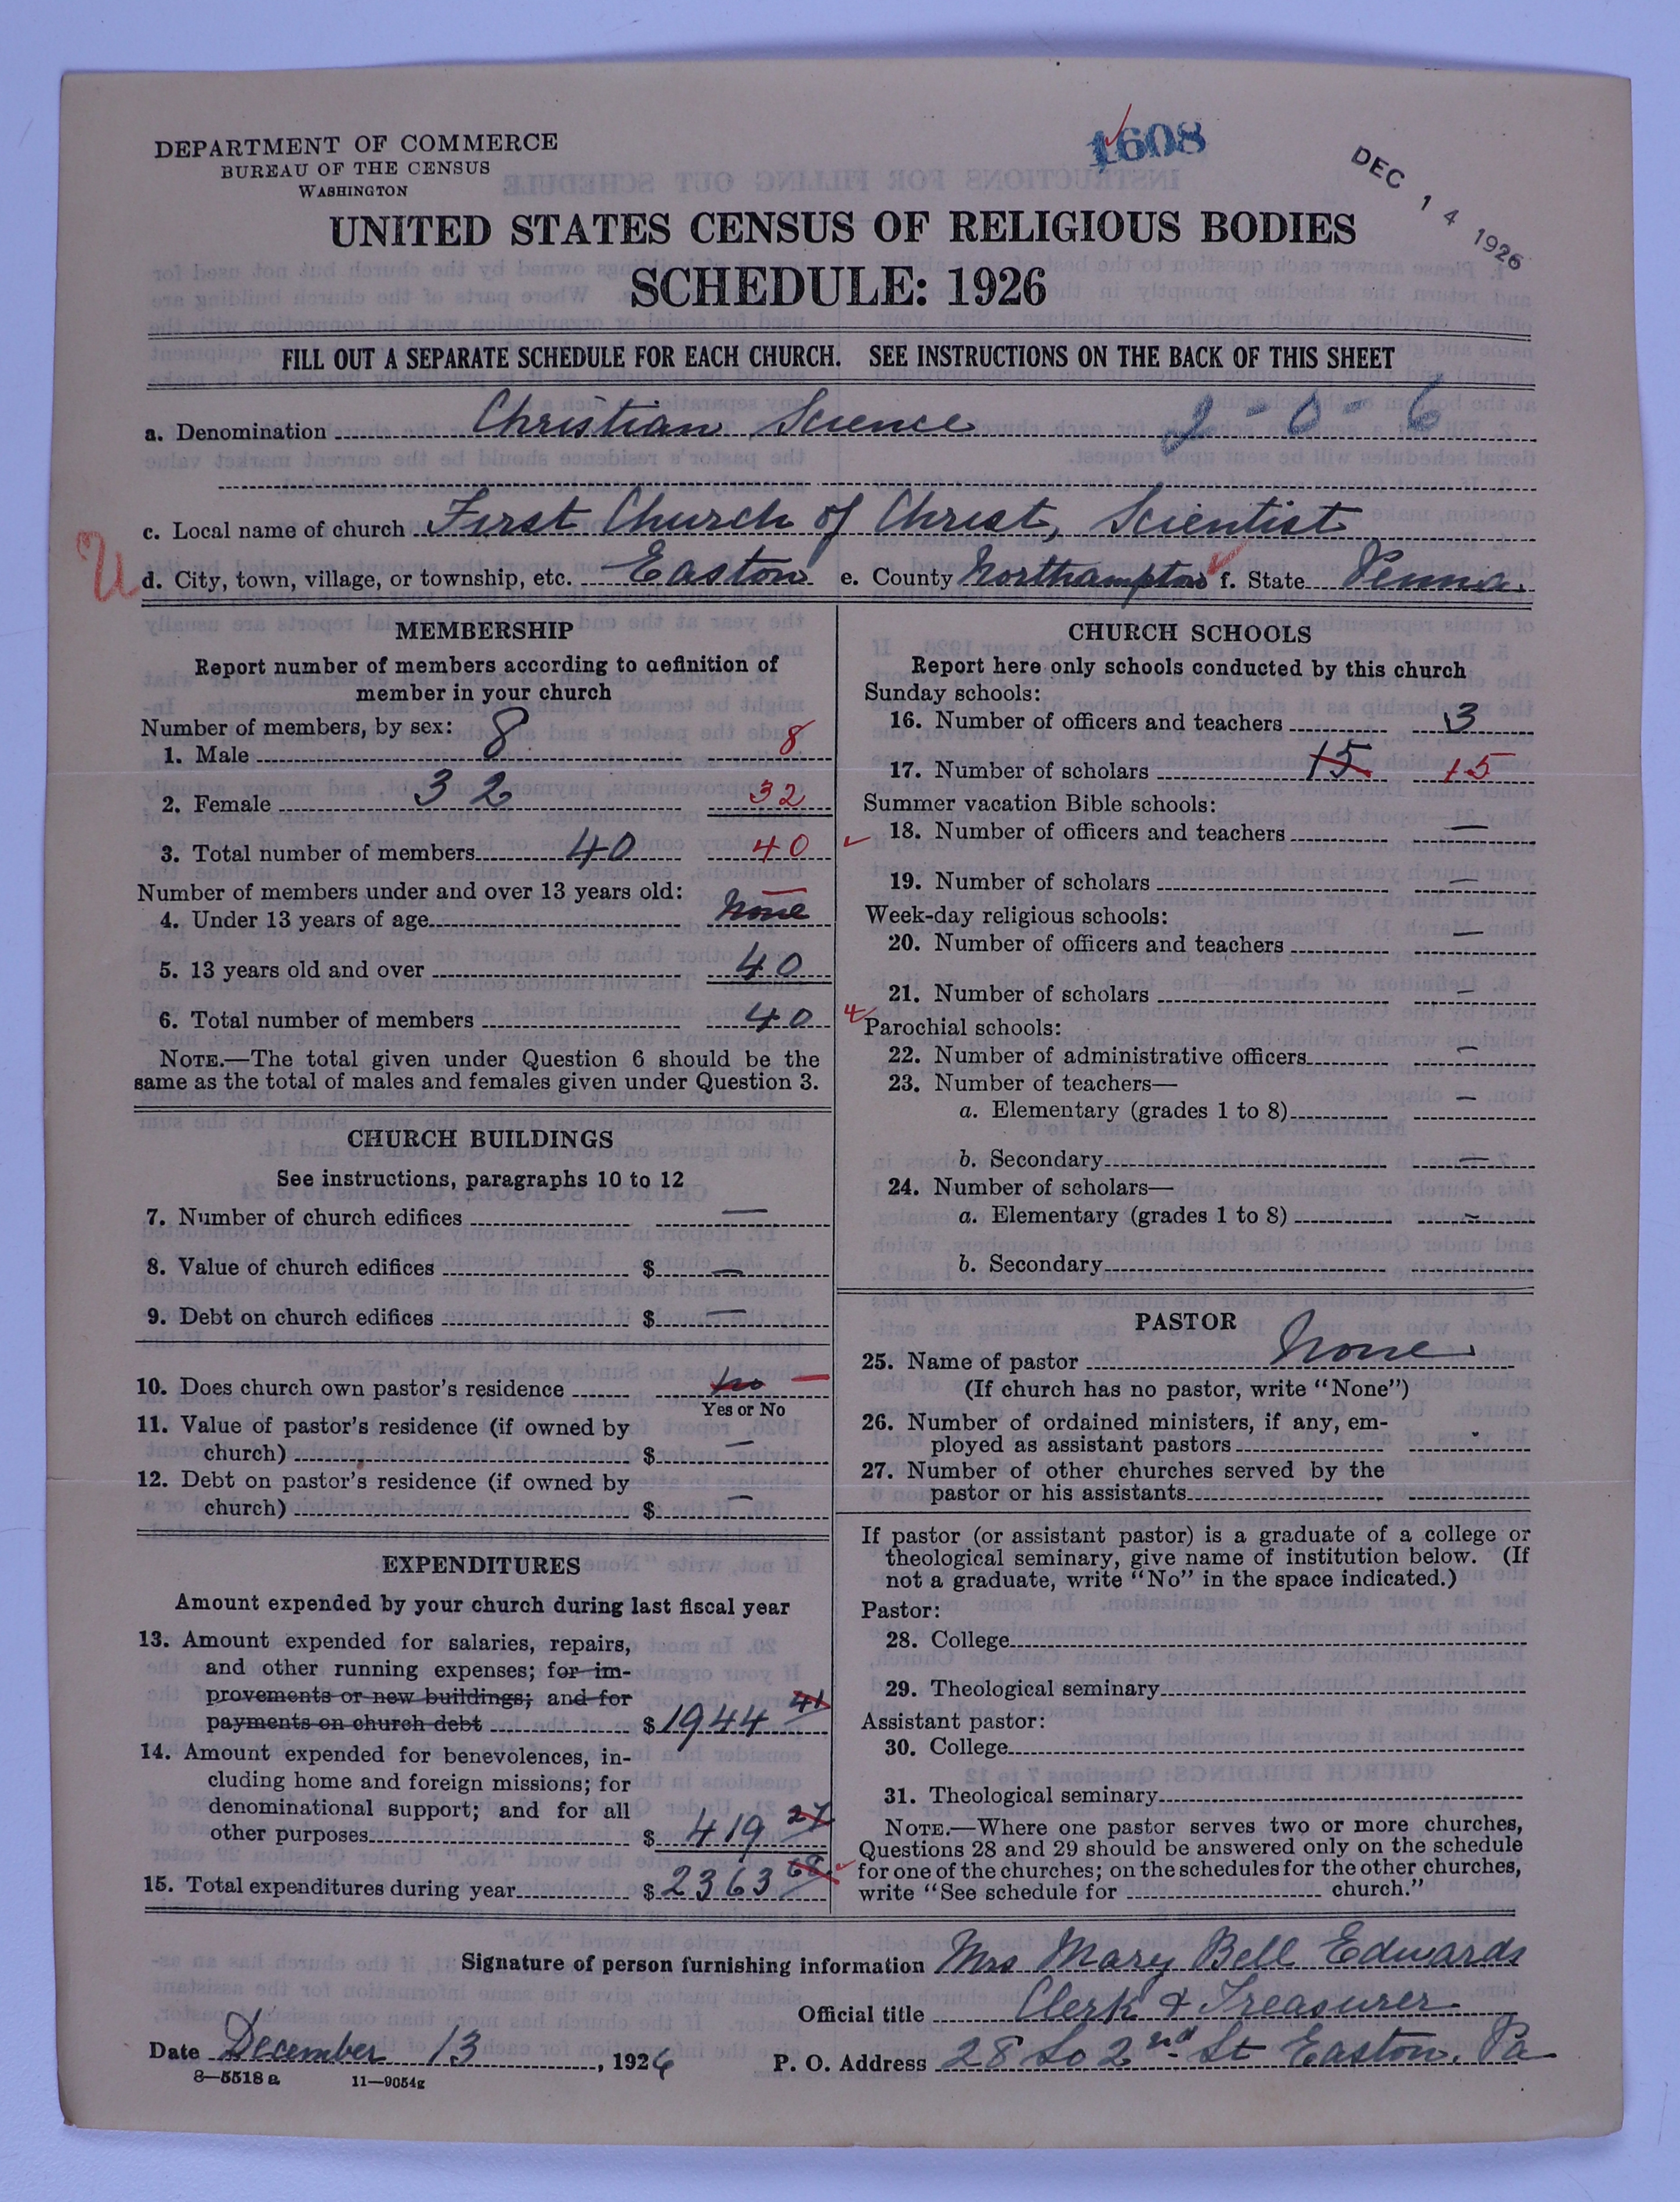 1608
DEC 14 1926
DEPARTMENT OF COMMERCE
BUREAU OF THE CENSUS
WASHINGTON
UNITED STATES CENSUS OF RELIGIOUS BODIES
SCHEDULE: 1926
FILL OUT A SEPARATE SCHEDULE FOR EACH CHURCH. SEE INSTRUCTIONS ON THE BACK OF THIS SHEET
a. Denomination Christian Science 2-0-6
c. Local name of church First Church of Christ, Scientist
U
d. City, town, village, or township, etc. Easton e. County Northampton f. State Penna.
MEMBERSHIP
Report number of members according to definition of
member in your church
Number of members, by sex:
1. Male 8 8
2. Female 32 32
3. Total number of members 40 40
Number of members under and over 13 years old:
4. Under 13 years of age None
5. 13 years old and over 40
6. Total number of members 40
NOTE.—The total given under Question 6 should be the
same as the total of males and females given under Question 3.
CHURCH BUILDINGS
See instructions, paragraphs 10 to 12
7. Number of church edifices —
8. Value of church edifices $ —
9. Debt on church edifices $ —
10. Does church own pastor's residence no —
Yes or No
11. Value of pastor's residence (if owned by
church) $ —
12. Debt on pastor's residence (if owned by
church) $ —
EXPENDITURES
Amount expended by your church during last fiscal year
13. Amount expended for salaries, repairs,
and other running expenses; for im-
provements or new buildings; and for
payments on church debt $ 1944 41
14. Amount expended for benevolences, in-
cluding home and foreign missions; for
denominational support; and for all
other purposes $ 419 27
15. Total expenditures during year $ 2363 68
CHURCH SCHOOLS
Report here only schools conducted by this church
Sunday schools:
16. Number of officers and teachers 3
17. Number of scholars 15 15
Summer vacation Bible schools:
18. Number of officers and teachers —
19. Number of scholars —
Week-day religious schools:
20. Number of officers and teachers —
21. Number of scholars —
Parochial schools:
22. Number of administrative officers —
23. Number of teachers—
a. Elementary (grades 1 to 8) —
b. Secondary —
24. Number of scholars—
a. Elementary (grades 1 to 8) —
b. Secondary
PASTOR
25. Name of pastor None
(If church has no pastor, write "None")
26. Number of ordained ministers, if any, em-
ployed as assistant pastors
27. Number of other churches served by the
pastor or his assistants
If pastor (or assistant pastor) is a graduate of a college or
theological seminary, give name of institution below. (If
not a graduate, write "No" in the space indicated.)
Pastor:
28. College
29. Theological seminary
Assistant pastor:
30. College
31. Theological seminary
NOTE.—Where one pastor serves two or more churches,
Questions 28 and 29 should be answered only on the schedule
for one of the churches; on the schedules for the other churches,
write "See schedule for church."
Signature of person furnishing information Mrs Mary Bell Edwards
Official title Clerk & Treasurer
Date December 13, 1926 P. O. Address 28 So 2nd St Easton, Pa
8—5518 a 11—9054g